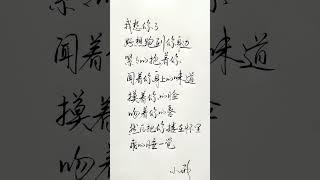 我想你了
好想跑到你身边
紧紧的抱着你
闻着你身上的味道
摸着你的脸
吻着你的唇
然后把你搂在怀里
美美的睡一觉
小彤